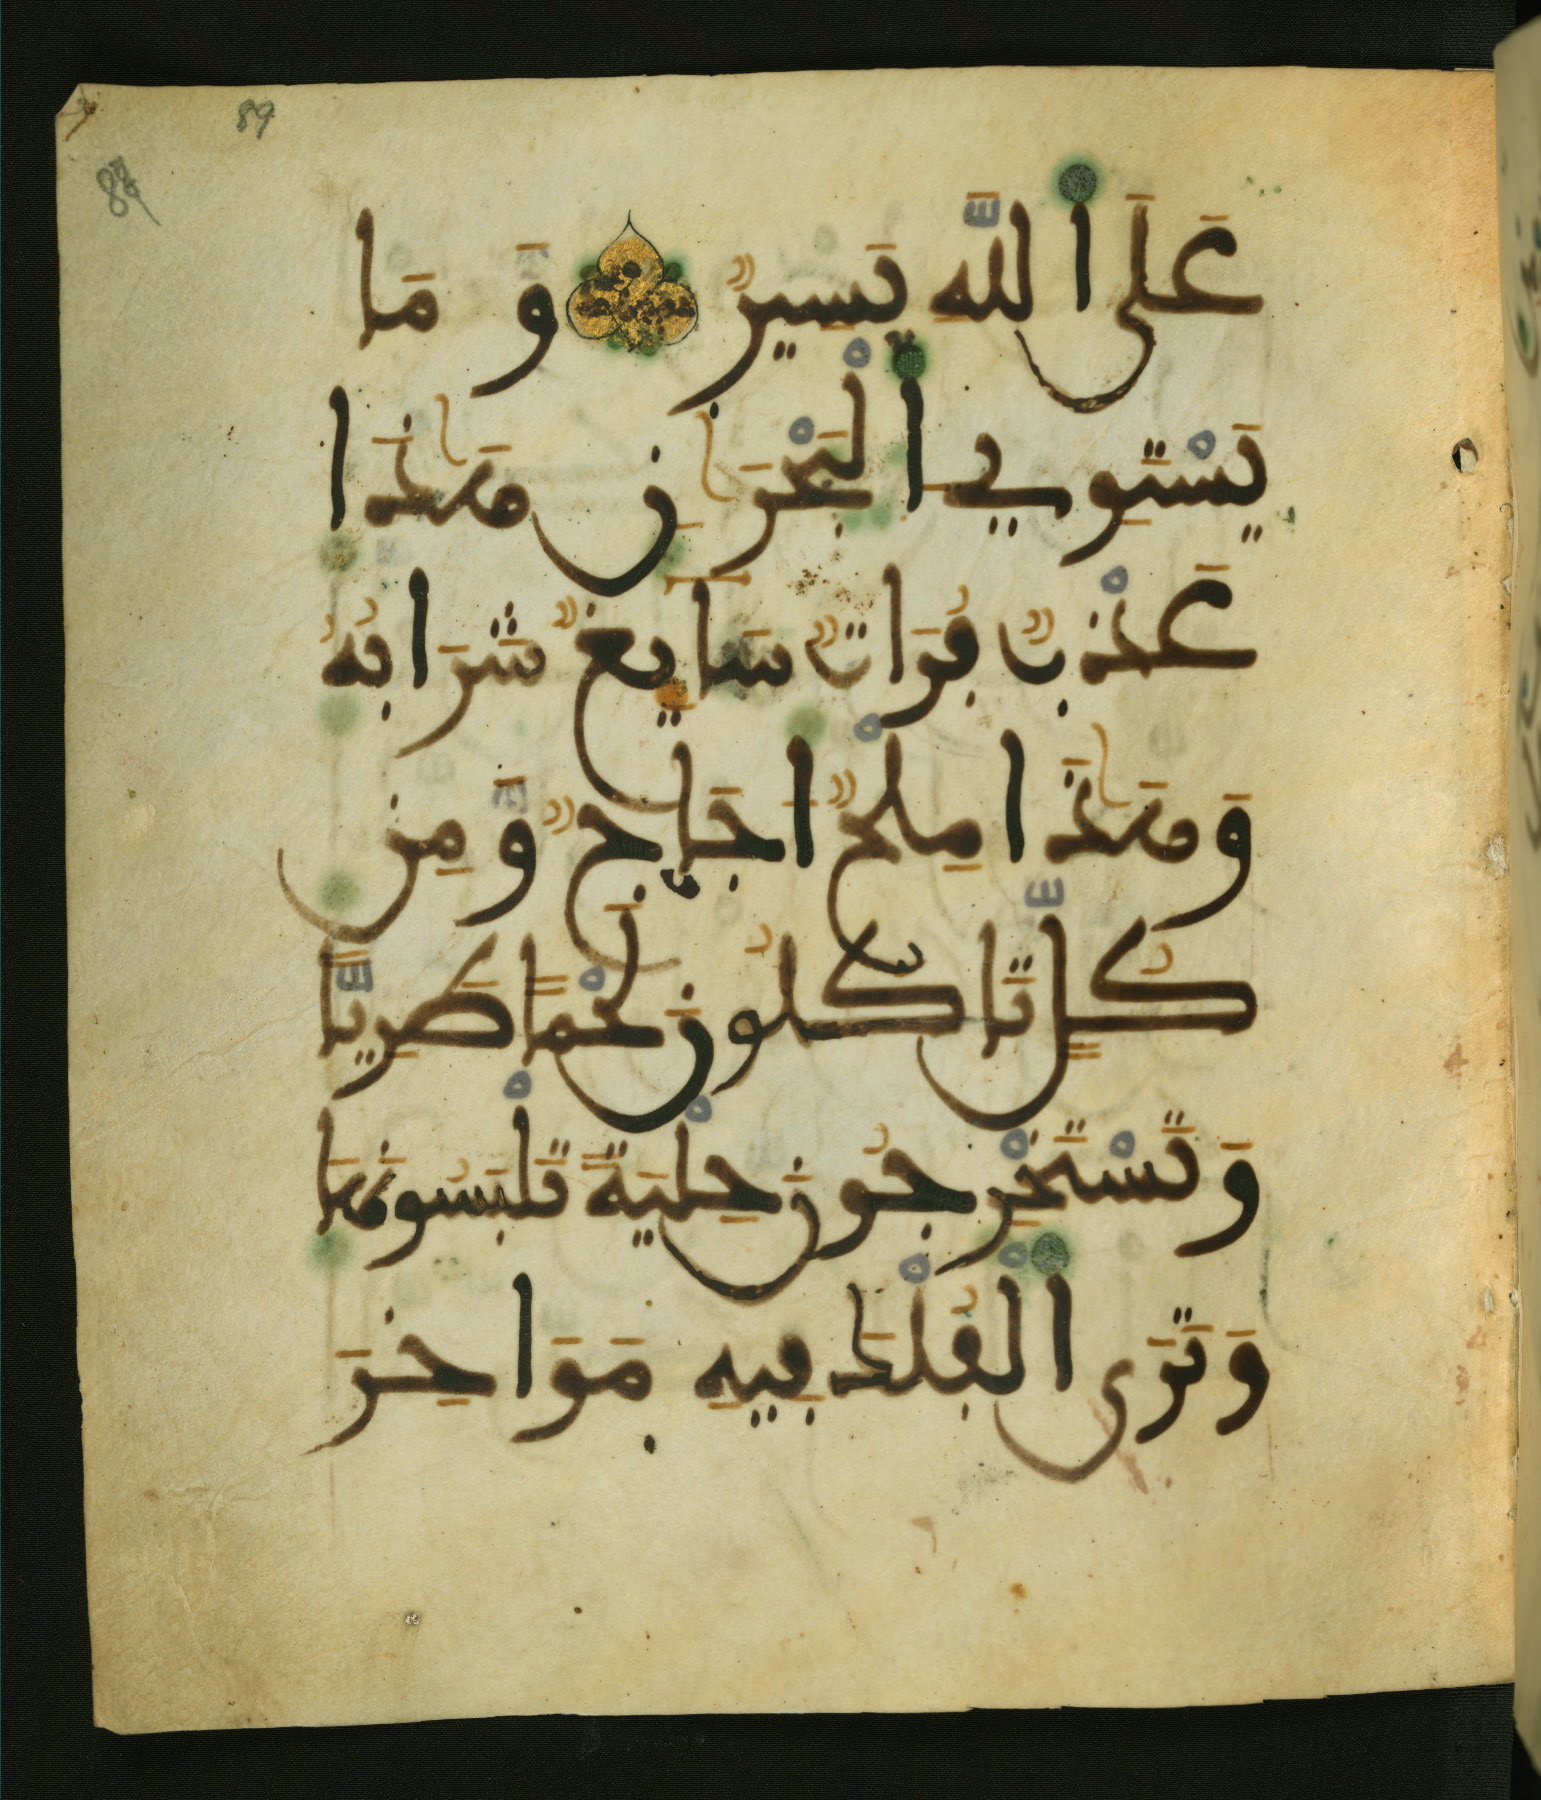 89
عَلَى اللَّهِ يَسِيرٌ وَّمَا
يَسْتَوِي الْبَحْرَٰنِ هَٰذَا
عَذْبٌ فُرَاتٌ سَآئِغٌ شَرَابُهُ
وَهَٰذَا مِلْحٌ اُجَاجٌ وَّمِن
كُلٍّ تَاكُلُونَ لَحْماً طَرِيّاً
وَتَسْتَخْرِجُونَ حِلْيَةً تَلْبَسُونَهَا
وَتَرَى الْفُلْكَ فِيهِ مَوَاخِرَ